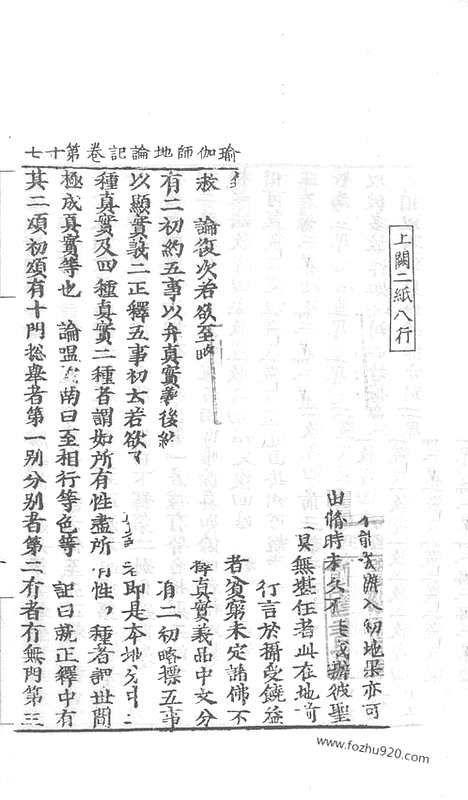 上闕二紙八行
瑜伽師地論記卷第十七
游入初地果亦可
由脩時未久不 辦彼聖
具無堪任者此在地前
行言於攝受饒益
者貧窮未定諸佛不
救 論復次若欲至略 釋真實義品中文分
有二初約五事以弁真實義後総 有二初略標五事
以顯實義二正釋五事初云若欲了 即是本地分中二
種真實及四種真實二種者謂如所有性盡所有性 種者謂世間
極成真實等也 論嗢 南曰至相行等色等 記曰就正釋中有
其二頌初頌有十門捴舉者第一別分別者第二有者有無門第三
www.fozhu920.com